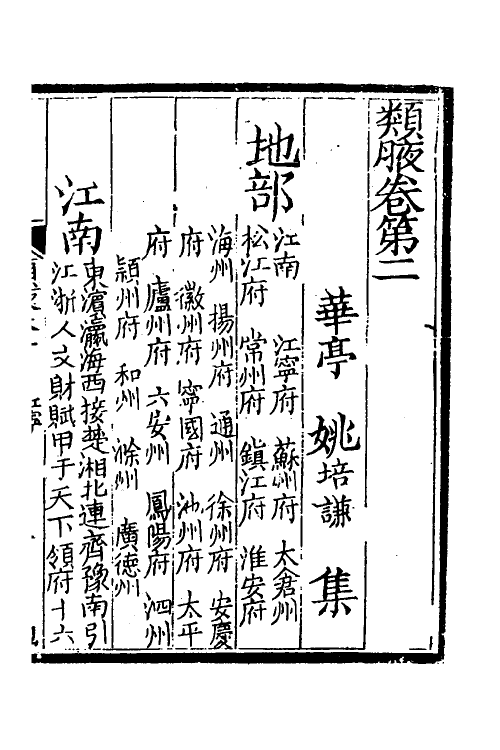 類腋卷第二
華亭 姚培謙 集
地部
江南 江寧府 蘇州府 太倉州
松江府 常州府 鎮江府 淮安府
海州 揚州府 通州 徐州府 安慶
府 徽州府 寧國府 池州府 太平
府 廬州府 六安州 鳳陽府 泗州
潁州府 和州 滁州 廣德州
江南
東濱瀛海西接楚湘北連齊豫南引
江浙人文財賦甲于天下領府十六